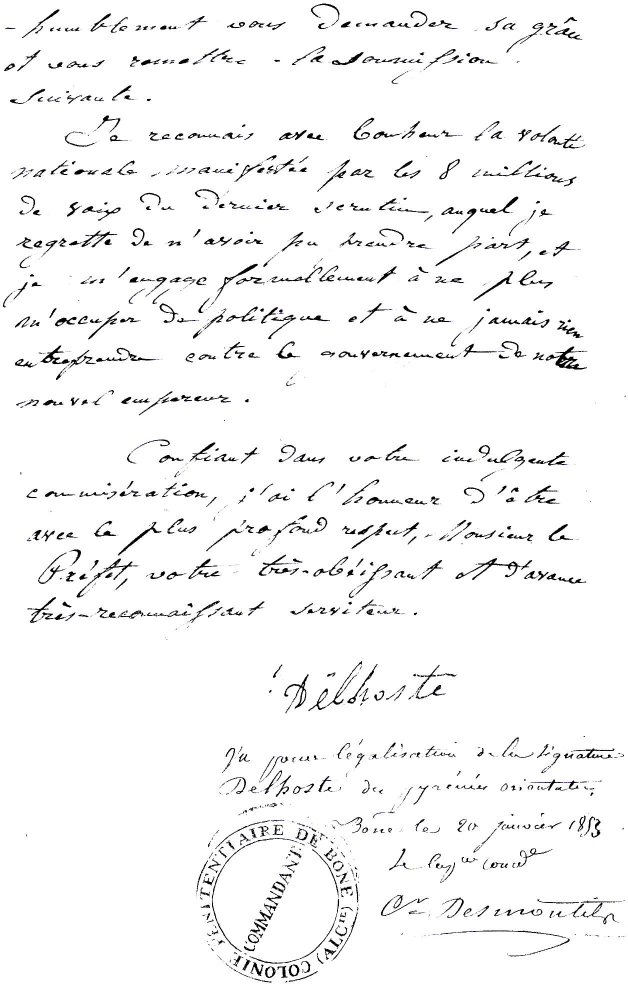 -humblement vous demander sa grâce
et vous remettre la soumission
suivante.
Je reconnais avec bonheur la volonté
nationale manifestée par les 8 millions
de voix du dernier scrutin, auquel je
regrette de n'avoir pu prendre part, et
je m'engage formellement à ne plus
m'occuper de politique et à ne jamais rien
entreprendre contre le gouvernement de notre
nouvel empereur.
Confiant dans votre indulgente
commisération, j'ai l'honneur d'être
avec le plus profond respect, Monsieur le
Préfet, votre très-obéissant et d'avance
très-reconnaissant serviteur.
Delhoste
Vu pour légalisation de la signature
Delhoste des pyrénées orientales,
Bône le 20 janvier 1853
Le Cap^ne comd^t
Desmoutils
COLONIE PENITENTIAIRE DE BONE (ALG^IE)
COMMANDANT